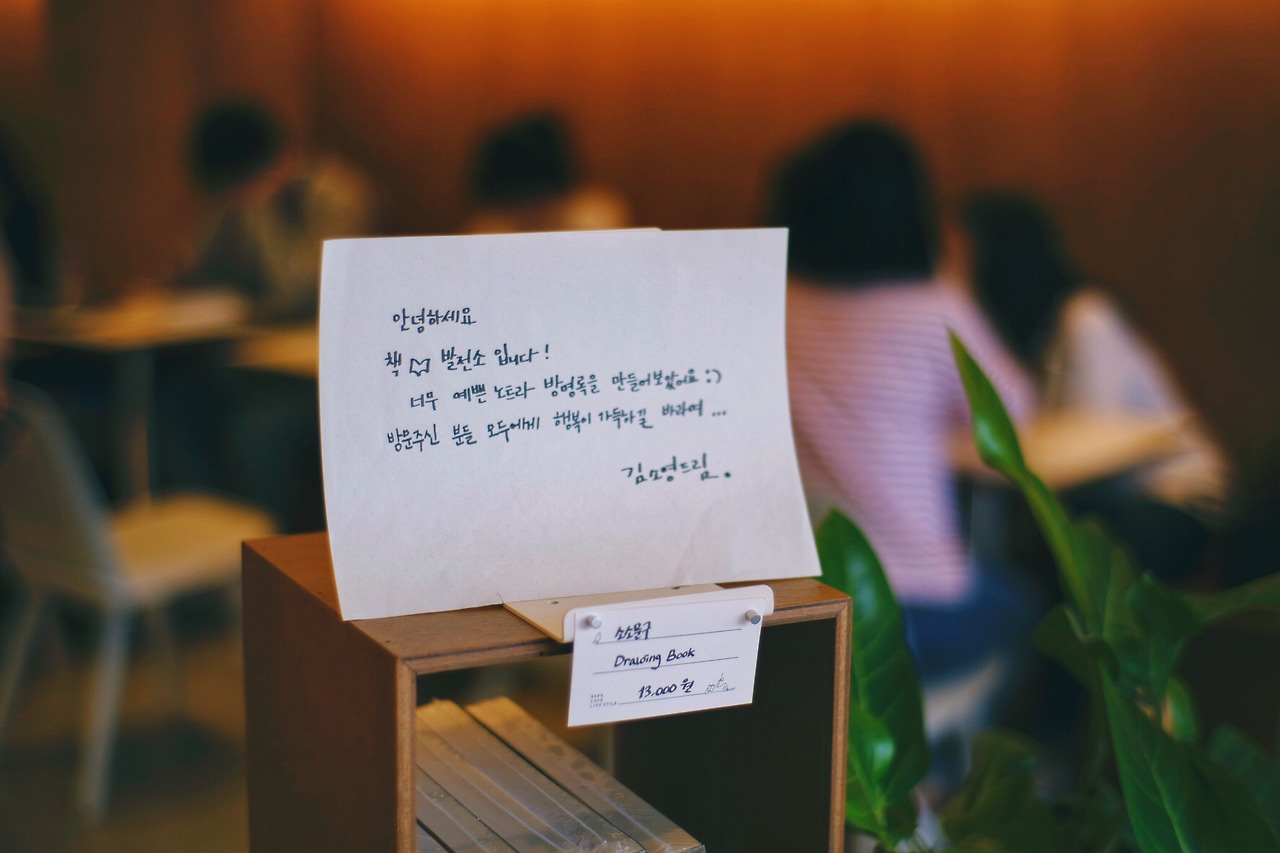 안녕하세요
책 발전소 입니다!
너무 예쁜 노트라 방명록을 만들어보았어요 :)
방문주신 분들 모두에게 행복이 가득하길 바라며 ...
김소영드림.
소소문구
Drawing Book
13,000 원
CAFE
LIFE STYLE